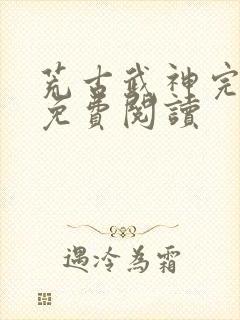 荒古武神完
免費閱讀
遇冷為霜